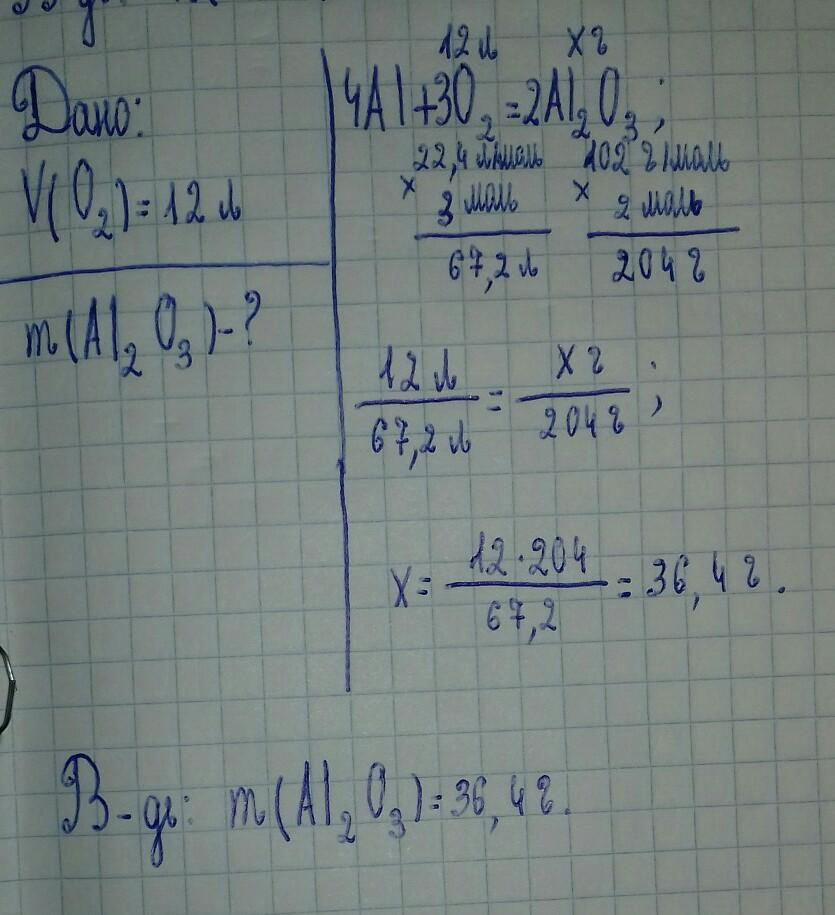 Дано:
V(O₂) = 12 л
m(Al₂O₃) - ?
12 л x г
4Al + 3O₂ = 2Al₂O₃;
22,4 л/моль 102 г/моль
× 3 моль × 2 моль
67,2 л 204 г
12 л / 67,2 л = x г / 204 г ;
x = 12 · 204 / 67,2 = 36,4 г.
В-дь: m(Al₂O₃) = 36,4 г.